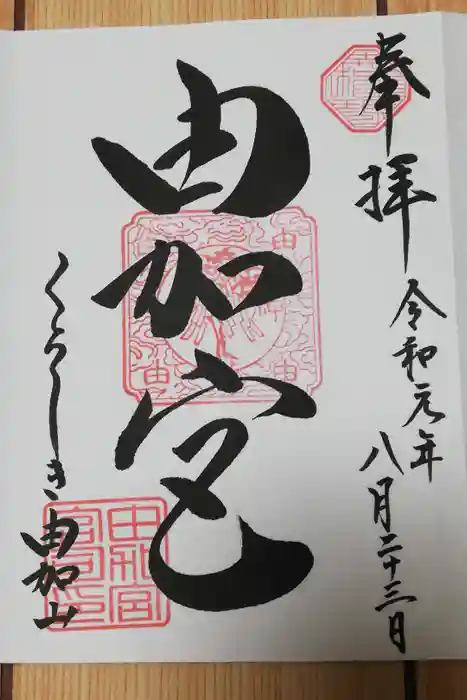 奉拝
令和元年
八月二十三日
由加宮
くらしき、由加山